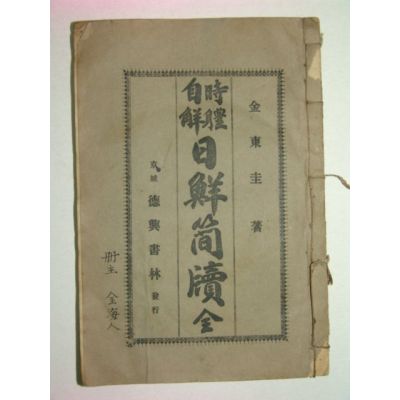 金東圭著
時體
自解
日鮮簡牘 全
京城 德興書林 發行
册主 金海人